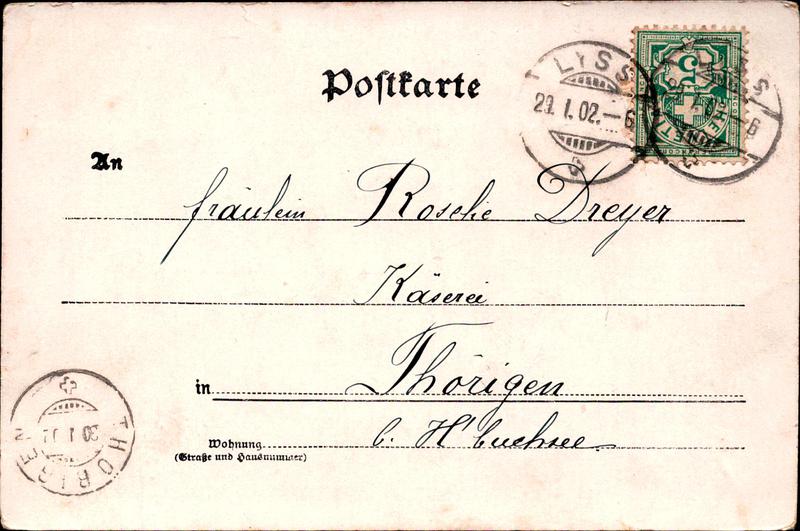 Postkarte
LYSS
29.I.02.–6
LYSS
–6
5
HELVETIA
An
Fräulein Roschi Dreyer
Käserei
in Thörigen
Wohnung b. H'buchsee
(Straße und Hausnummer)
THÖRIGEN
30 I 02